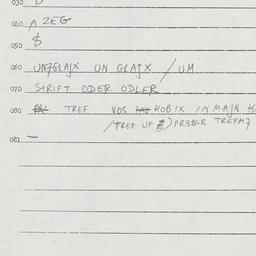 030
040 A ZEG
$
050
060 UN7GLAJX UN GLAJX / UM
070 SHRIFT ODER ODLER
080 TREF VOS HOBIX IN MAJN
/TREF UF PR3BLR TREFM7
081 —